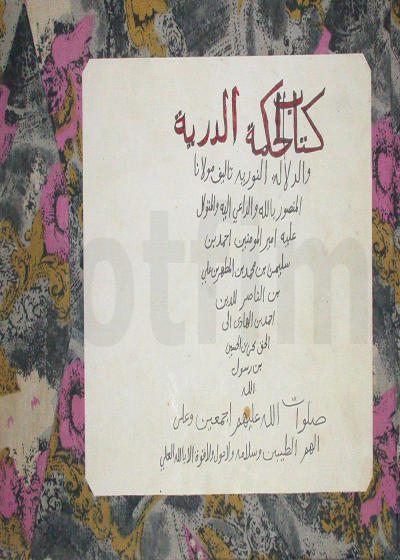 كتاب الحكمة الدرية
والدلاله النوريه تاليف مولانا
المنصور بالله والداعي اليه والمتوكل
عليه امير المومنين احمد بن
سليمن بن محمد بن المطهر بن علي
بن الناصر للدين
احمد بن الهادي الى
الحق يحيى بن الحسين
بن رسول
الله
صلوات الله عليهم اجمعين وعلى
الهم الطيبين وسلامه ولا حول ولا قوة الا بالله العلي